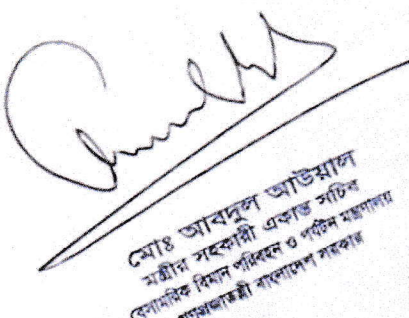 মোঃ আবদুল আউয়াল
মন্ত্রীর সহকারী একান্ত সচিব
বেসামরিক বিমান পরিবহন ও পর্যটন মন্ত্রণালয়
গণপ্রজাতন্ত্রী বাংলাদেশ সরকার